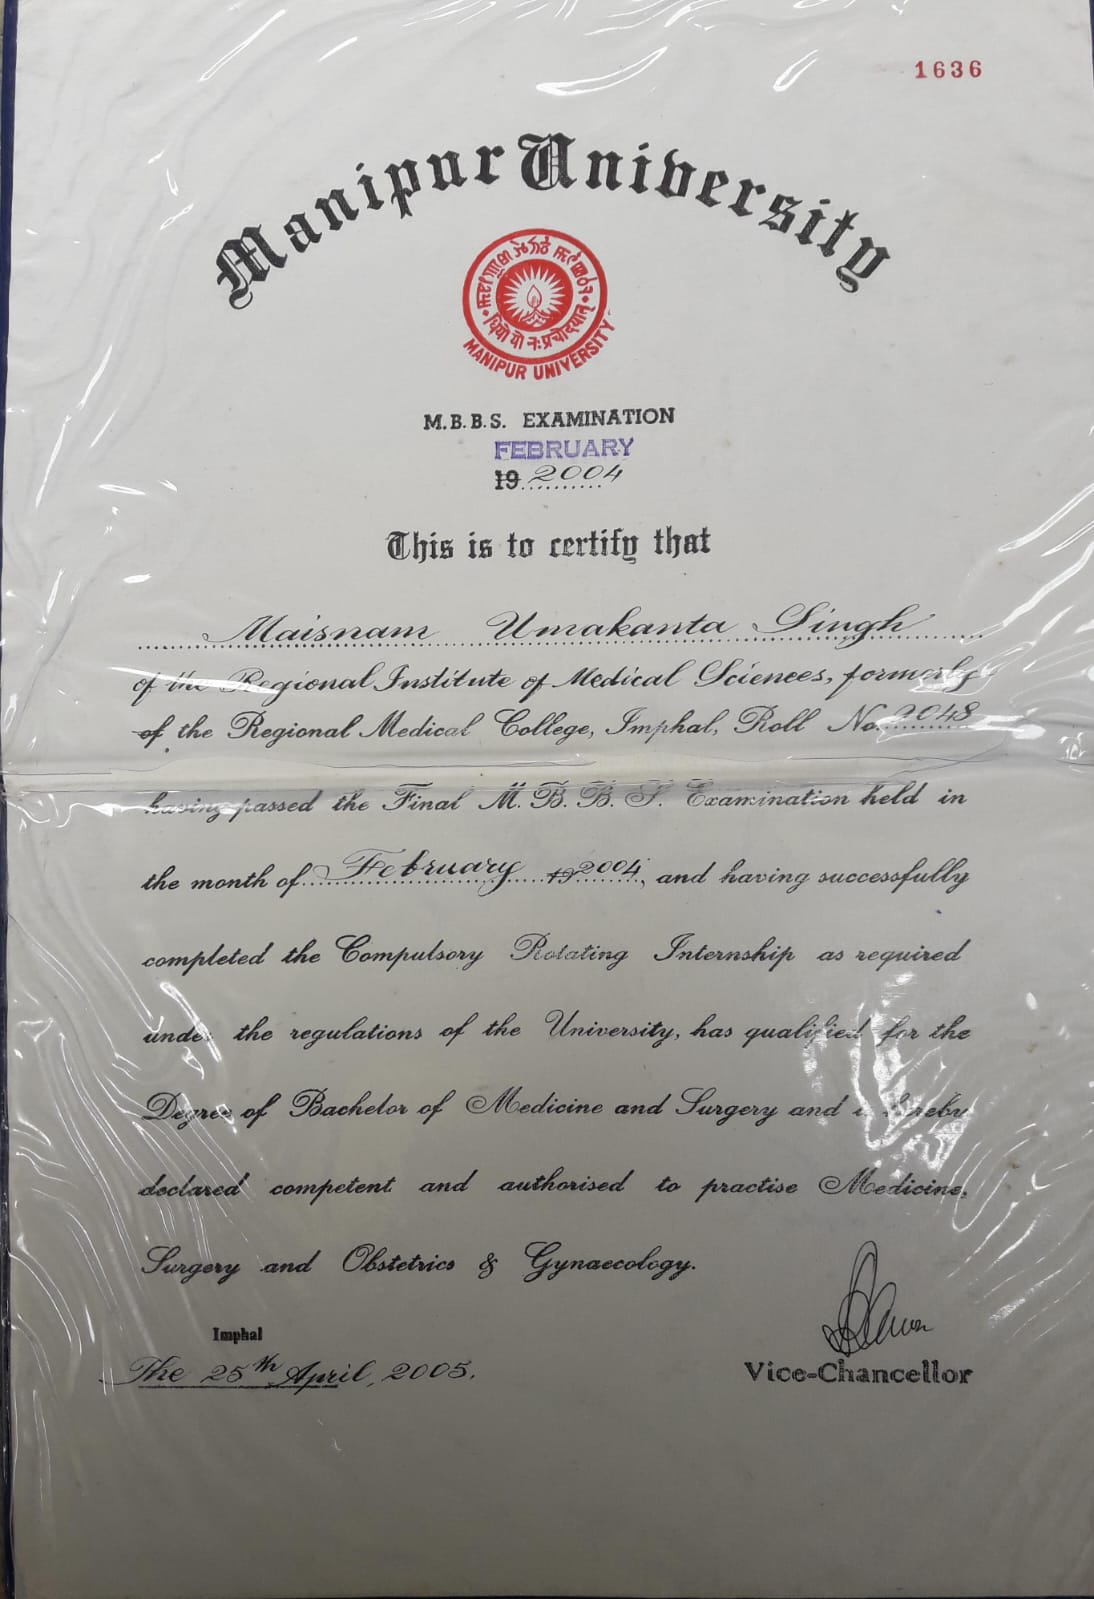 1636
Manipur University
धियो यो नः प्रचोदयात्
MANIPUR UNIVERSITY
M.B.B.S. EXAMINATION
FEBRUARY
19 2004
This is to certify that
Maisnam Umakanta Singh
of the Regional Institute of Medical Sciences, formerly
of the Regional Medical College, Imphal, Roll No. 2048
having passed the Final M. B. B. S. Examination held in
the month of February 19 2004, and having successfully
completed the Compulsory Rotating Internship as required
under the regulations of the University, has qualified for the
Degree of Bachelor of Medicine and Surgery and is hereby
declared competent and authorised to practise Medicine,
Surgery and Obstetrics & Gynaecology.
Imphal
The 25th April, 2005.
Vice-Chancellor